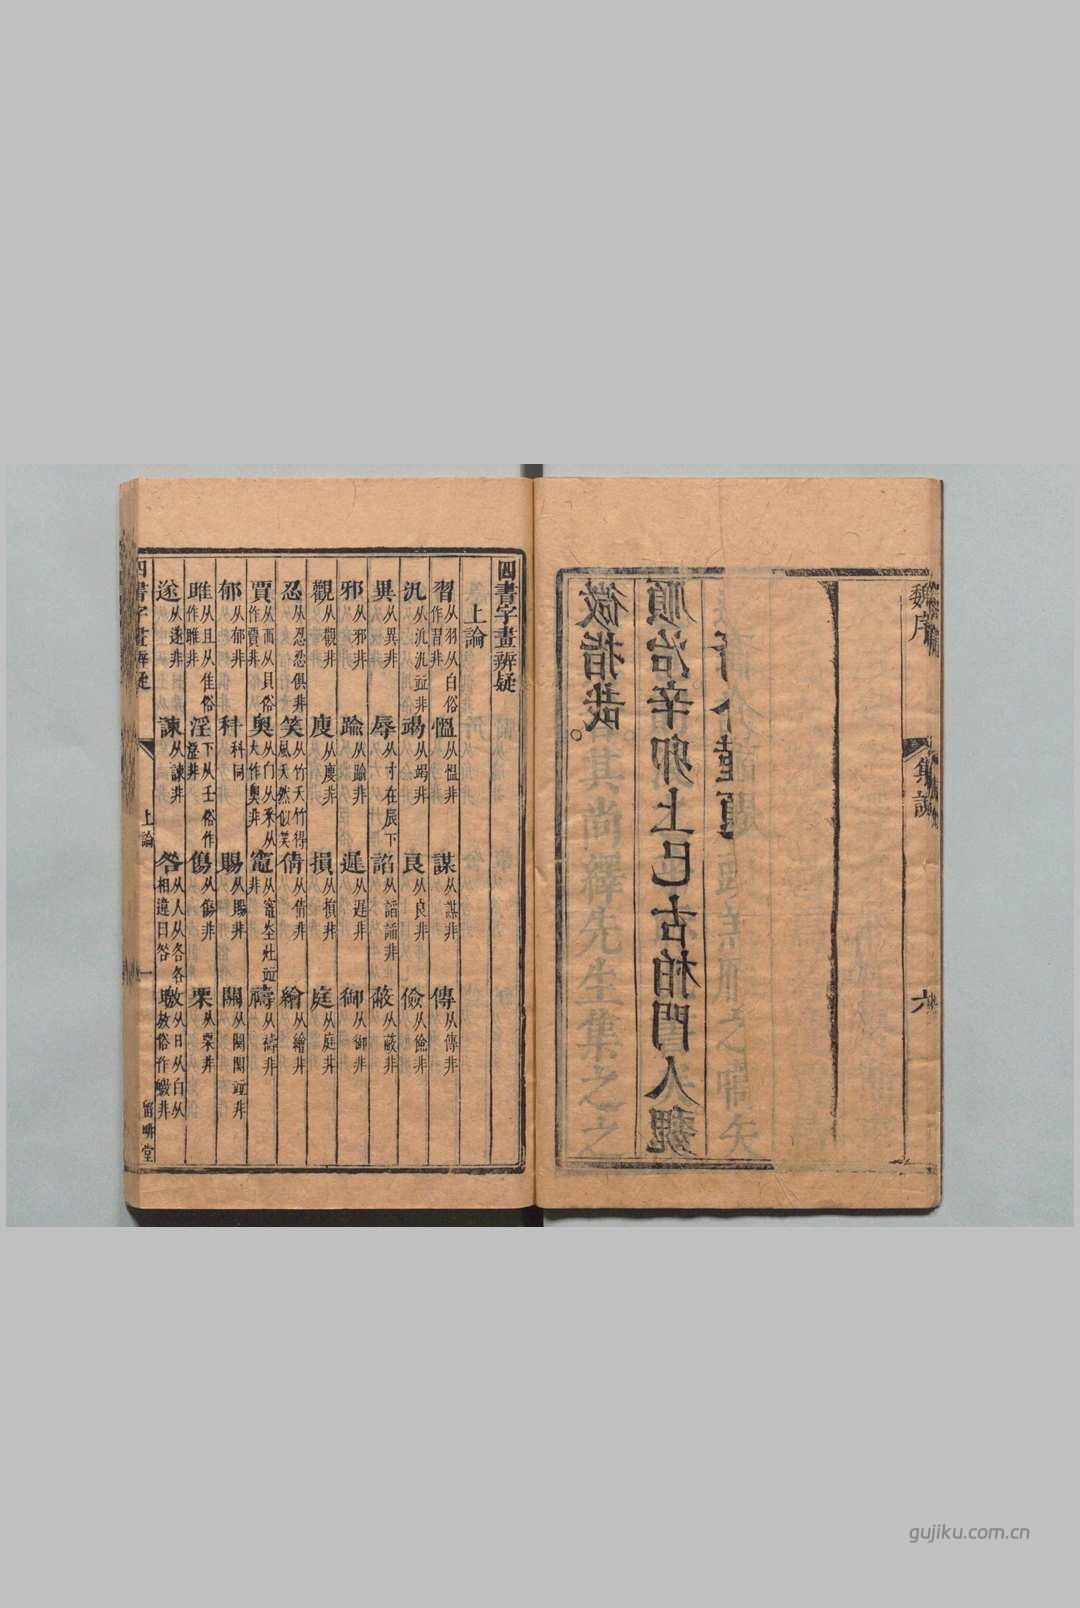 魏序
集說
六
微指哉。
順治辛卯上巳古柏門人魏
裔介謹題
四書字畫辨疑
上論
習从羽从白俗作習非 慍从慍非 謀从謀非 傳从傳非
汎从汎汎竝非 竭从竭非 良从良非 儉从儉非
異从異非 辱从寸在辰下 諂从謟諂非 蔽从蔽非
邪从邪非 踰从踰非 遲从遲非 御从御非
觀从觀非 廋从廋非 損从損非 庭从庭非
忍从忍忍俱非 笑从竹夭竹得風夭然似笑 倩从倩非 繪从繪非
賈从襾从貝俗作賈非 奧从白从釆从大作奧非 竈从竈坴灶竝非 禱从禱非
郁从郁非 科科同 賜从賜非 關从関閞竝非
雎从且从隹俗作睢非 淫下从壬俗作滛非 傷从傷非 栗从栗非
遂从遂非 諫从諫非 咎从人从各各相違曰咎 皦从日从白从敫俗作皦非
四書字畫辨疑
上論
一
留畊堂
gujiku.com.cn